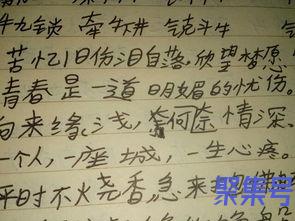 牛九锁 牵牛饼 铳斗牛
苦忆旧伤泪自落,欣望梦愿
青春是一道明媚的忧伤。
向来缘浅,奈何奈情深,
一个人,一座城,一生心疼。
平时不火烧香,急来抱佛
聚集号